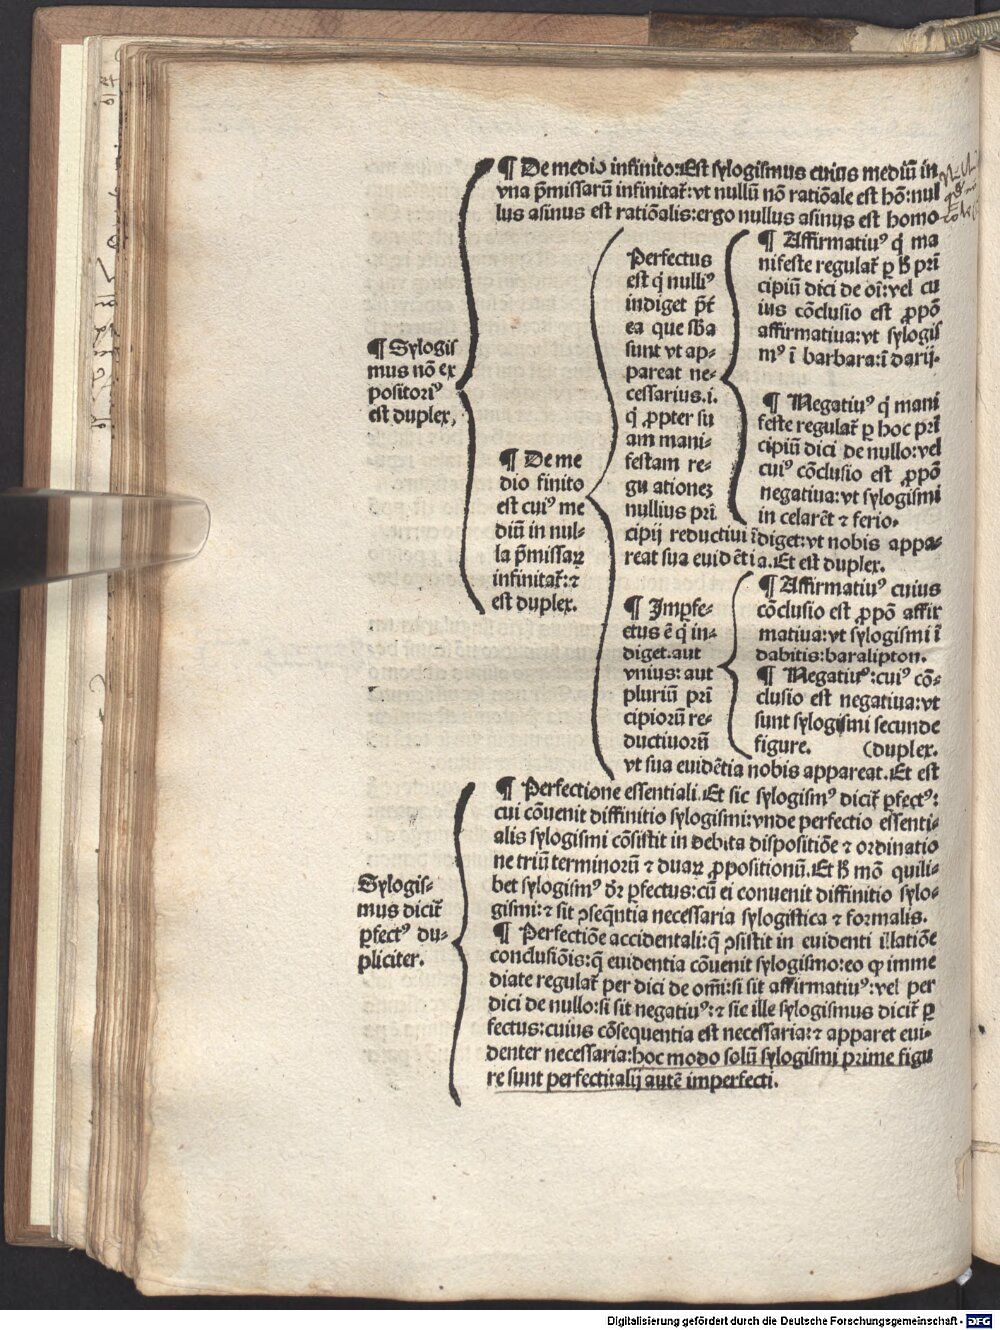 ¶ Sylogis
mus nō ex
positoriꝰ
est duplex,
¶ De medio infinito: Est sylogismus cuius mediū in
vna p̄missarū infinitat᷑: vt nullū nō ratiōale est hō: nul
lus asinus est ratiōalis: ergo nullus asinus est homo
¶ De me
dio finito
est cuiꝰ me
diū in nul-
la p̄missaꝝ
infinitat᷑: ⁊
est duplex.
Perfectus
est q̇ nulliꝰ
indiget p̄t
ea que sb̄a
sunt vt ap-
pareat ne-
cessarius .i.
q̇ ꝓpter su
am mani-
festam re-
gu ationeꝫ
nullius pri
cipij reductiui īdiget: vt nobis appa-
reat sua euidētia. Et est duplex.
¶ Affirmatiuꝰ q̇ ma
nifeste regulat᷑ ꝑ ꝧ prī
cipiū dici de oī: vel cu
ius cōclusio est ꝓpō
affirmatiua: vt sylogis
mꝰ ī barbara: ī darij.
¶ Negatiuꝰ q̇ mani
feste regulat᷑ ꝑ hoc prī
cipiū dici de nullo: vel
cuiꝰ cōclusio est ꝓpō
negatiua: vt sylogismi
in celarēt ⁊ ferio.
¶ Impfe-
ctus ē q̇ in-
diget aut
vnius: aut
pluriū pri
cipiorū re-
ductiuorū
vt sua euidētia nobis appareat. Et est
(duplex.
¶ Affirmatiuꝰ cuius
cōclusio est ꝓpō affir
matiua: vt sylogismi ī
dabitis: baralipton.
¶ Negatiuꝰ: cuiꝰ cō-
clusio est negatiua: vt
sunt sylogismi secunde
figure.
Sylogis-
mus dicit᷑
ꝑfectꝰ du-
pliciter.
¶ Perfectione essentiali. Et sic sylogismꝰ dicit᷑ ꝑfectꝰ:
cui cōuenit diffinitio sylogismi: vnde perfectio essenti-
alis sylogismi cōsistit in debita dispositiōe ⁊ ordinatio
ne triū terminorū ⁊ duaꝝ ꝓpositionū. Et ꝧ mō quili-
bet sylogismꝰ dr̄ ꝑfectus: cū ei conuenit diffinitio sylo-
gismi: ⁊ sit ꝯseq̄ntia necessaria sylogistica ⁊ formalis.
¶ Perfectiōe accidentali: q̄ ꝯsistit in euidenti illatiōe
conclusiōis: q̄ euidentia cōuenit sylogismo: eo ꝙ imme
diate regulat᷑ per dici de omī: si sit affirmatiuꝰ: vel per
dici de nullo: si sit negatiuꝰ: ⁊ sic ille sylogismus dicit᷑ ꝑ
fectus: cuius cōsequentia est necessaria: ⁊ apparet eui-
denter necessaria: hoc modo solū sylogismi prime figu
re sunt perfecti: alij autē imperfecti.
Digitalisierung gefördert durch die Deutsche Forschungsgemeinschaft - DFG